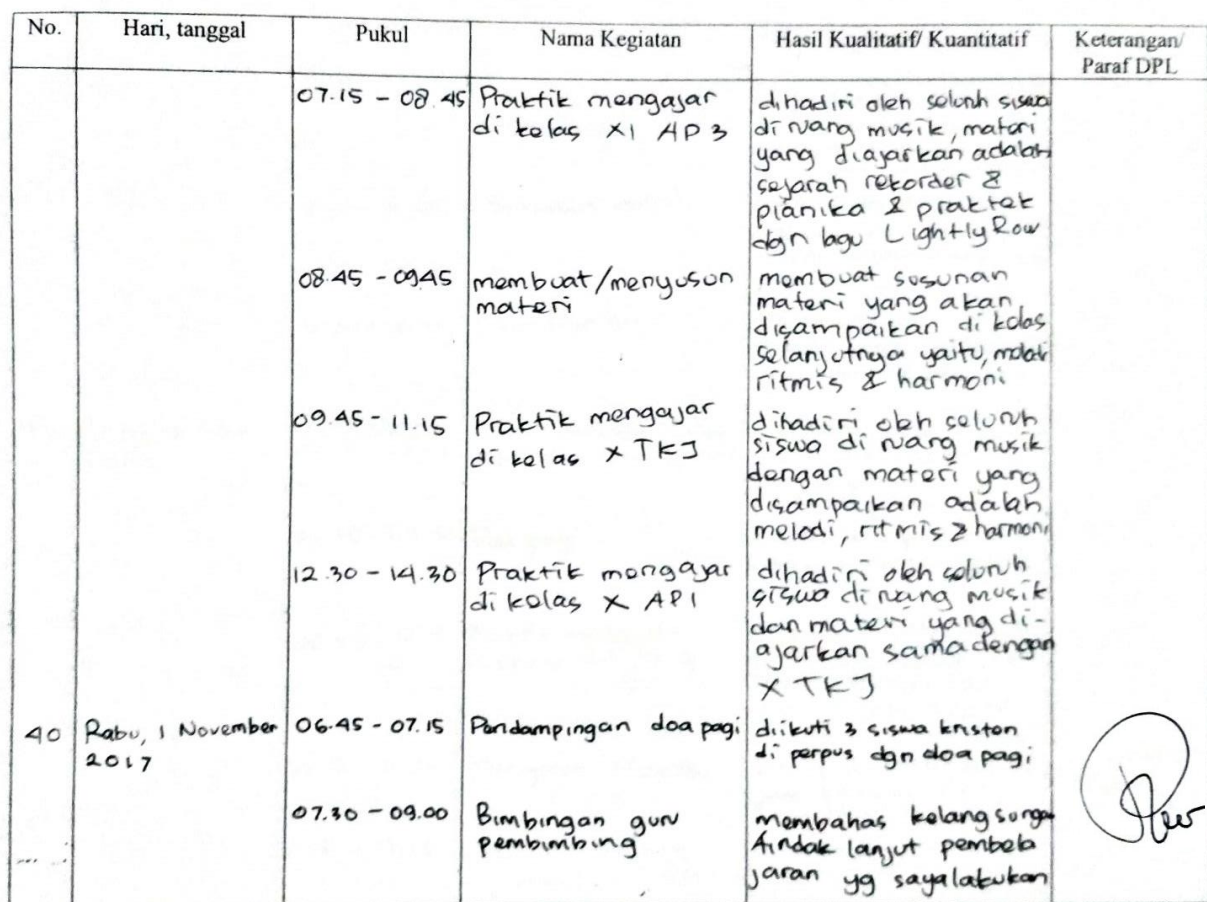 No. Hari, tanggal Pukul Nama Kegiatan Hasil Kualitatif/ Kuantitatif Keterangan/
Paraf DPL
07.15 - 08.45 Praktik mengajar dihadiri oleh seluruh siswa
di kelas XI AP 3 di ruang musik, materi
yang diajarkan adalah
sejarah rekorder &
pianika & praktek
dgn lagu Lightly Row
08.45 - 0945 membuat/menyusun membuat susunan
materi materi yang akan
disampaikan di kelas
selanjutnya yaitu, melodi
ritmis & harmoni
09.45 - 11.15 Praktik mengajar dihadiri oleh seluruh
di kelas X TKJ siswa di ruang musik
dengan materi yang
disampaikan adalah
melodi, ritmis & harmoni
12.30 - 14.30 Praktik mengajar dihadiri oleh seluruh
di kelas X AP1 siswa di ruang musik
dan materi yang di-
ajarkan sama dengan
X TKJ
40 Rabu, 1 November 06.45 - 07.15 Pendampingan doa pagi diikuti 3 siswa kristen
2017 di perpus dgn doa pagi
07.30 - 09.00 Bimbingan guru membahas kelangsungan
pembimbing tindak lanjut pembela
jaran yg saya lakukan